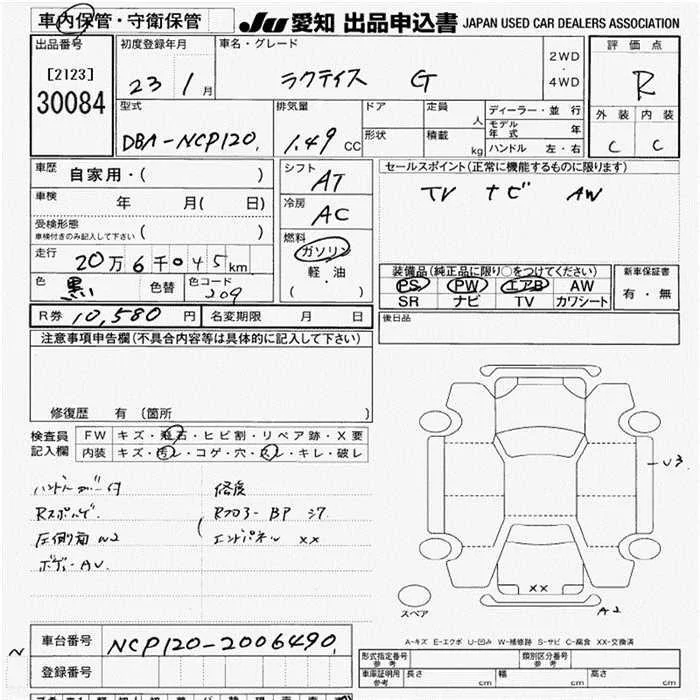 車内保管・守衛保管
JU 愛知 出品申込書 JAPAN USED CAR DEALERS ASSOCIATION
出品番号
[2123]
30084
初度登録年月
23 1月
車名・グレード
ラクティス G
2WD
・
4WD
評価点
R
外装 内装
C C
型式
DBA-NCP120
排気量
1.49 CC
ドア
形状
定員 人
積載 kg
ディーラー・並行
モデル年式 年
ハンドル 左・右
車歴 自家用・( )
車検 年 月( 日)
受検形態
車検付きのみ記入して下さい ( )
走行 20万6千045km
色 黒 色替 色コード 209
シフト AT
冷房 AC
燃料
ガソリン
軽・油
( )
セールスポイント(正常に機能するものに限ります)
TV ナビ AW
装備品(純正品に限り○をつけてください)
PS PW エアB AW
SR ナビ TV カワシート
新車保証書
有・無
R券 10,580円 名変期限 月 日
後日品
注意事項申告欄(不具合内容等は具体的に記入して下さい)
修復歴 有 〔箇所 〕
検査員
記入欄
FW キズ・飛石・ヒビ割・リペア跡・X要
内装 キズ・汚レ・コゲ・穴・スレ・キレ・破レ
ハンドルカバー付
圧側角 U2
ボデーAU
修復
Rフロアー BP シワ
エンドパネル XX
U3
XX
A2
スペア
A-キズ E-エクボ U-凹み W-補修跡 S-サビ C-腐食 XX-交換済
車台番号 NCP120-2006490
登録番号
型式指定番号
参考
類別区分番号
参考
車庫証明用
参考
長さ cm 幅 cm 高さ cm